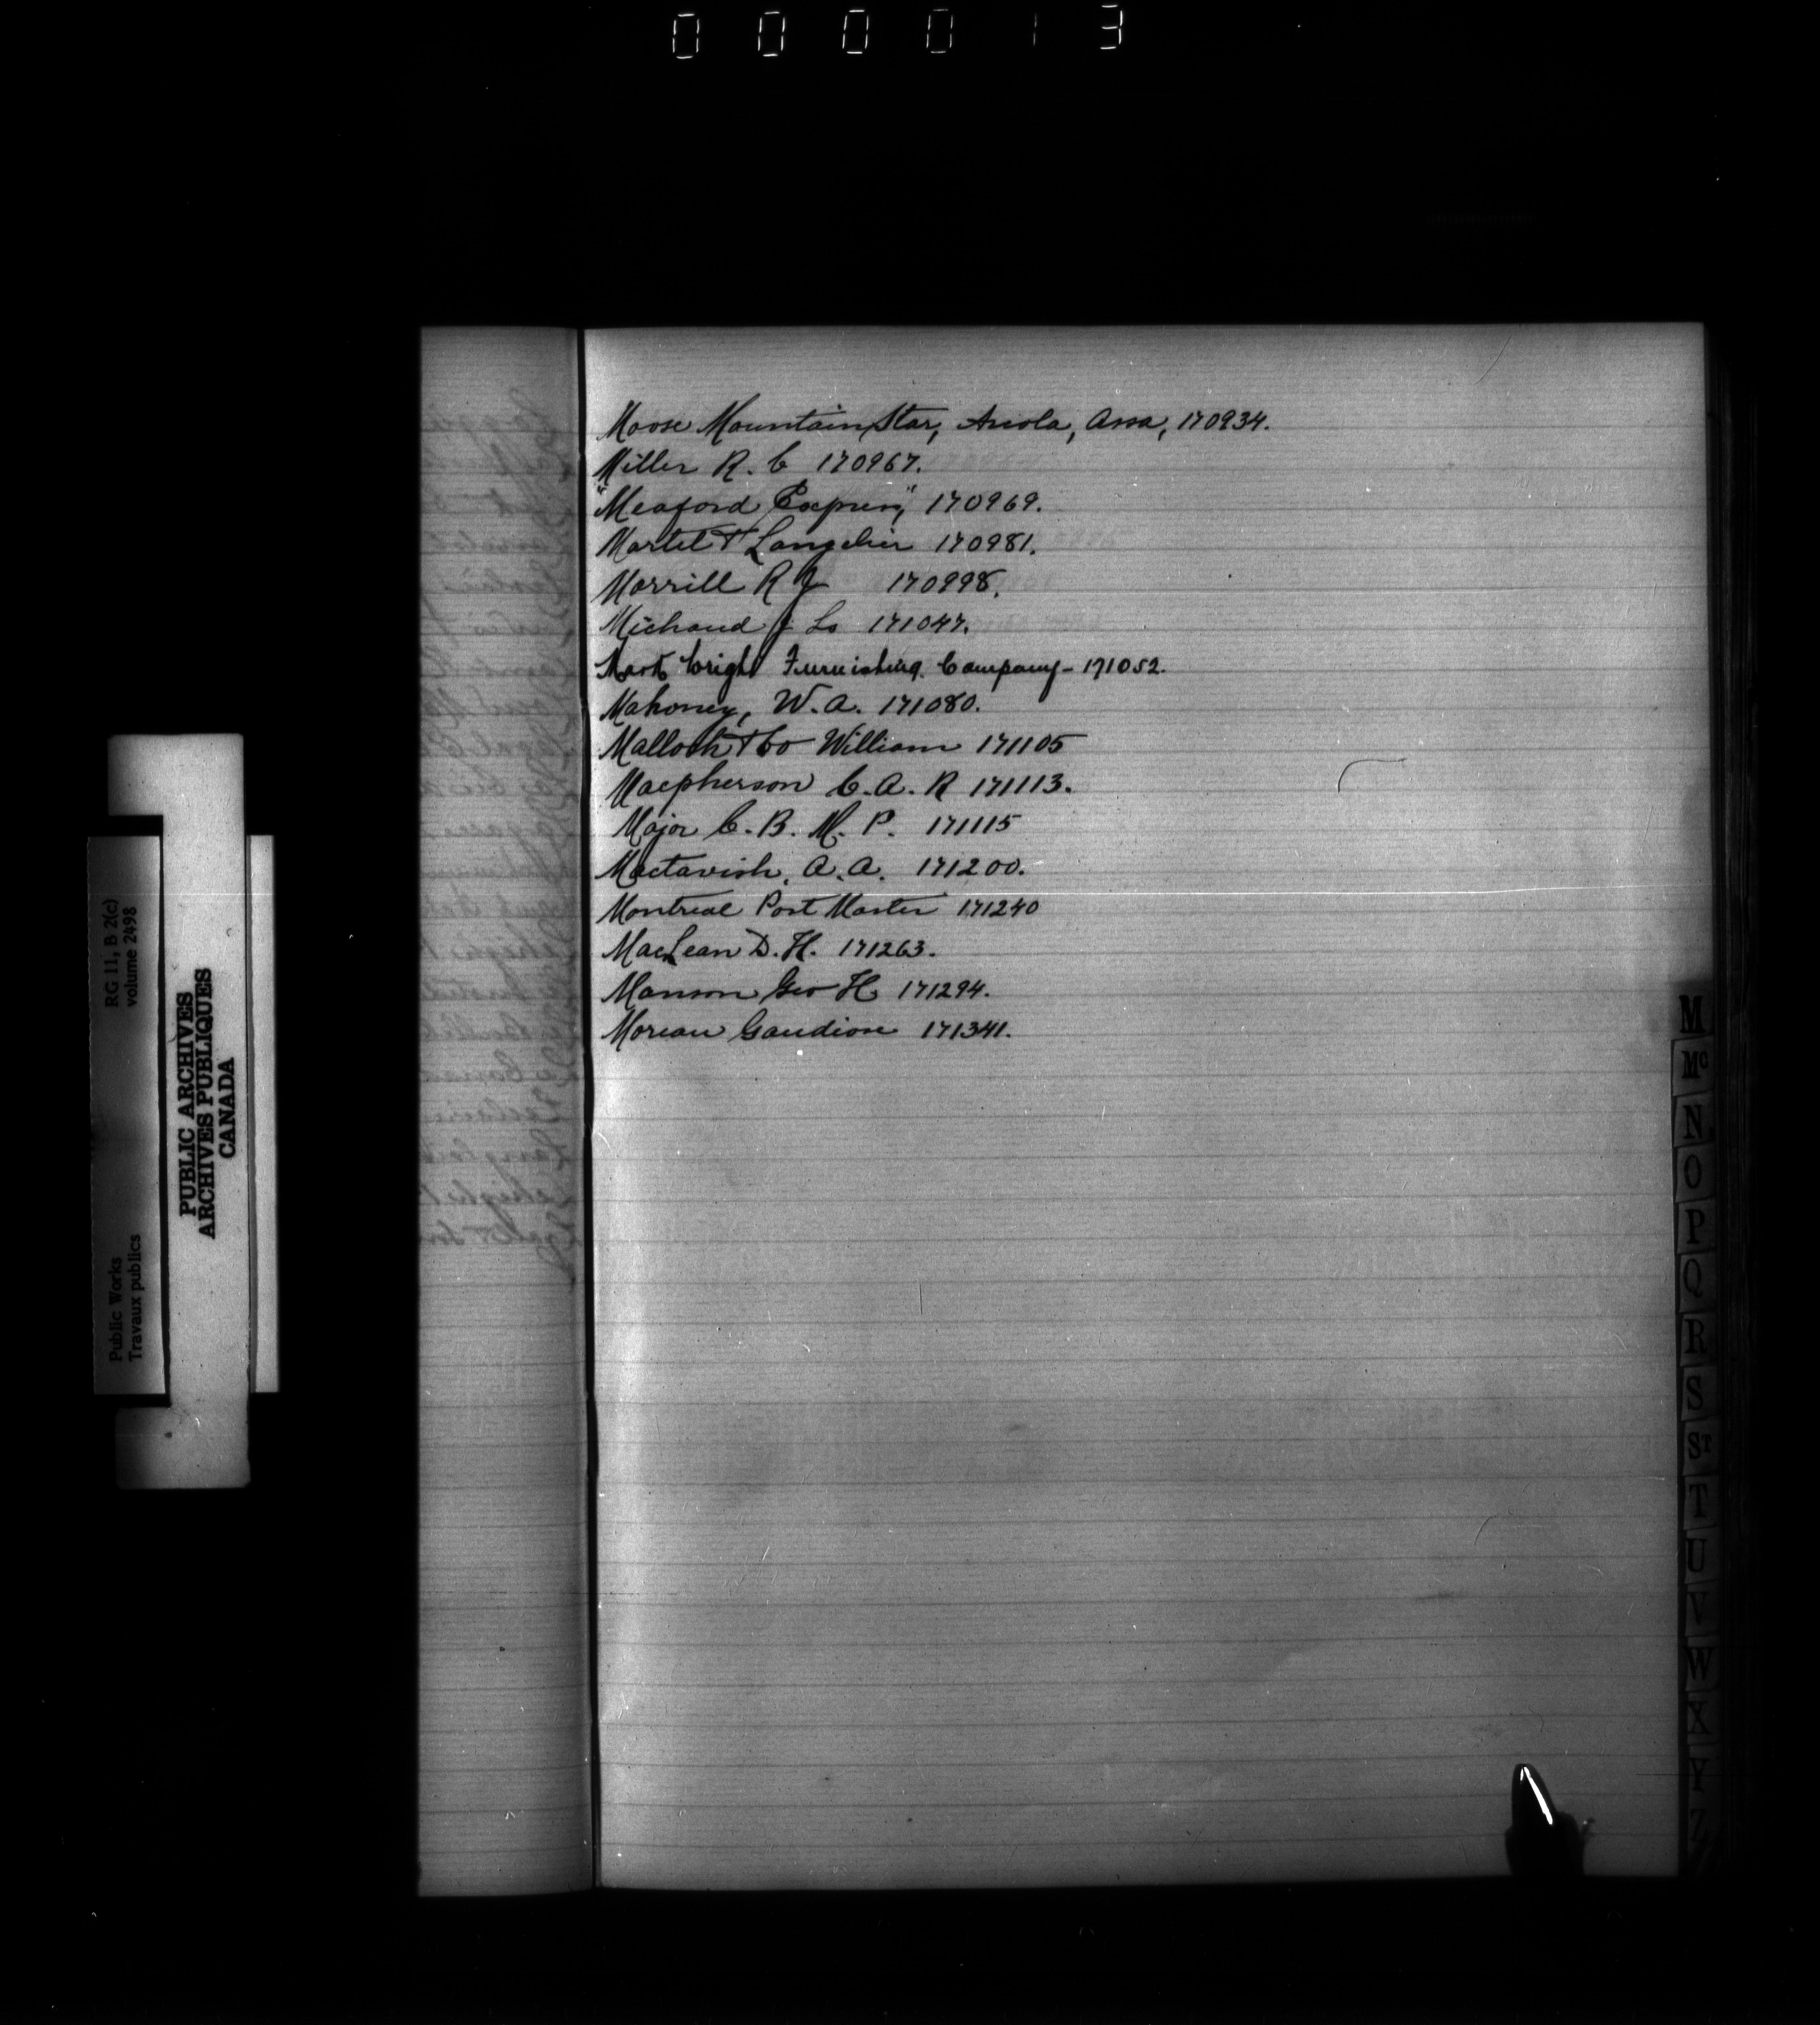 000013
Moose Mountain Star, Arcola, Assa, 170934.
Miller R. C 170967.
"Meaford Express," 170969.
Martel & Langelier 170981.
Morrill R J 170998.
Michaud J Ls 171047.
Mark Wright Furnishing Company - 171052.
Mahoney, W. A. 171080.
Malloch & Co William 171105
Macpherson C. A. R 171113.
Major C. B. M. P. 171115
Mactavish, A. A. 171200.
Montreal Post Master 171240
MacLean D. H. 171263.
Manson Geo H 171294.
Moreau Gaudiose 171341.
RG 11, B 2(c)
volume 2498
Public Works
Travaux publics
PUBLIC ARCHIVES
ARCHIVES PUBLIQUES
CANADA
M
Mc
N
O
P
Q
R
S
ST
T
U
V
W
X
Y
Z